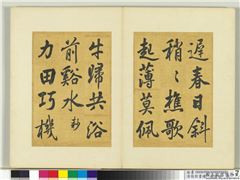 遲春日斜
稍〻樵歌
起薄莫佩
牛歸共浴
前谿水
力田巧機